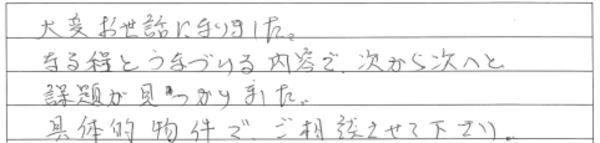 大変お世話になりました。
なる程とうなづける内容で、次から次へと
課題が見つかりました。
具体的物件で、ご相談させて下さい。